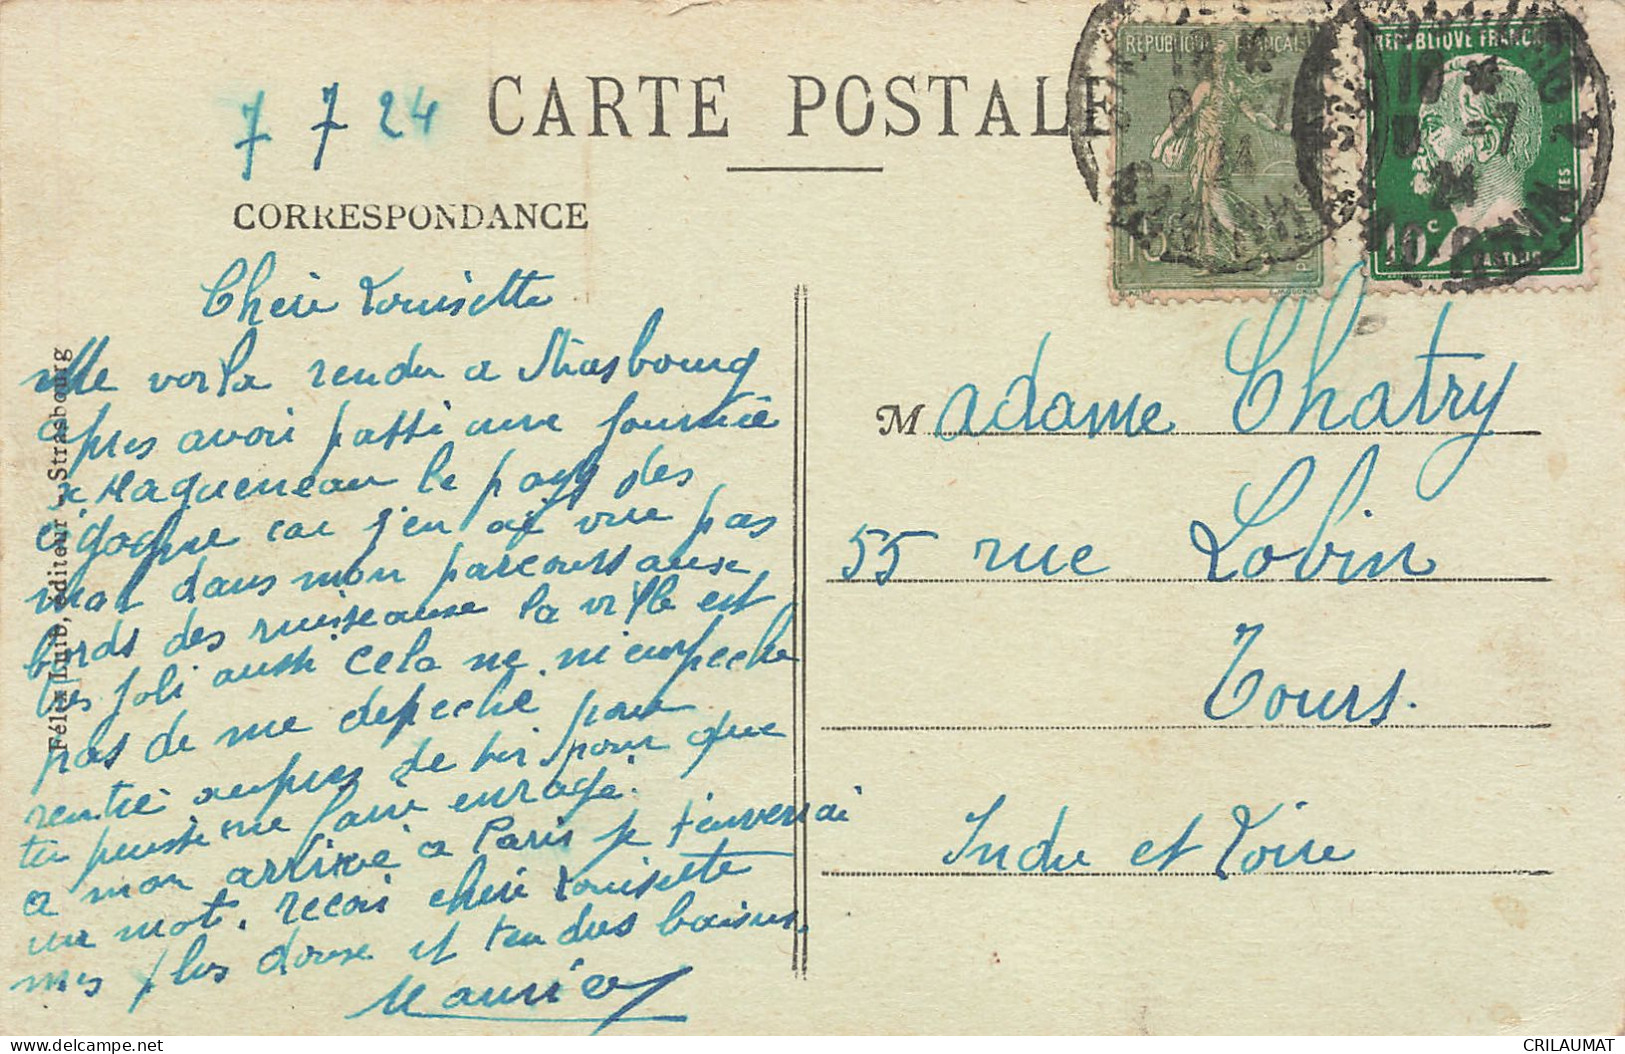 7 7 24
CARTE POSTALE
CORRESPONDANCE
REPUBLIQUE FRANCAISE
REPUBLIQUE FRANCAISE
10 c
PASTEUR
18 *
8 -7
24
Cherie Louisette
Me voila rendu a Strasbourg
apres avoir passé une journée
a Hagueneau le pays des
cigogne car j'en ai vue pas
mal dans mon parcourt aux
bords des ruisseaux la ville est
tres joli aussi cela ne m'empeche
pas de me depeché pour
rentré aupres de toi pour que
tu puisse me faire enragé.
a mon arrivé a Paris je t'enverrai
un mot. recois cheri Louisette
mes plus doux et tendres baisers.
Maurice
Félix Luib, éditeur - Strasbourg
Madame Chatry
55 rue Lobin
Tours.
Indre et Loire
CRILAUMAT